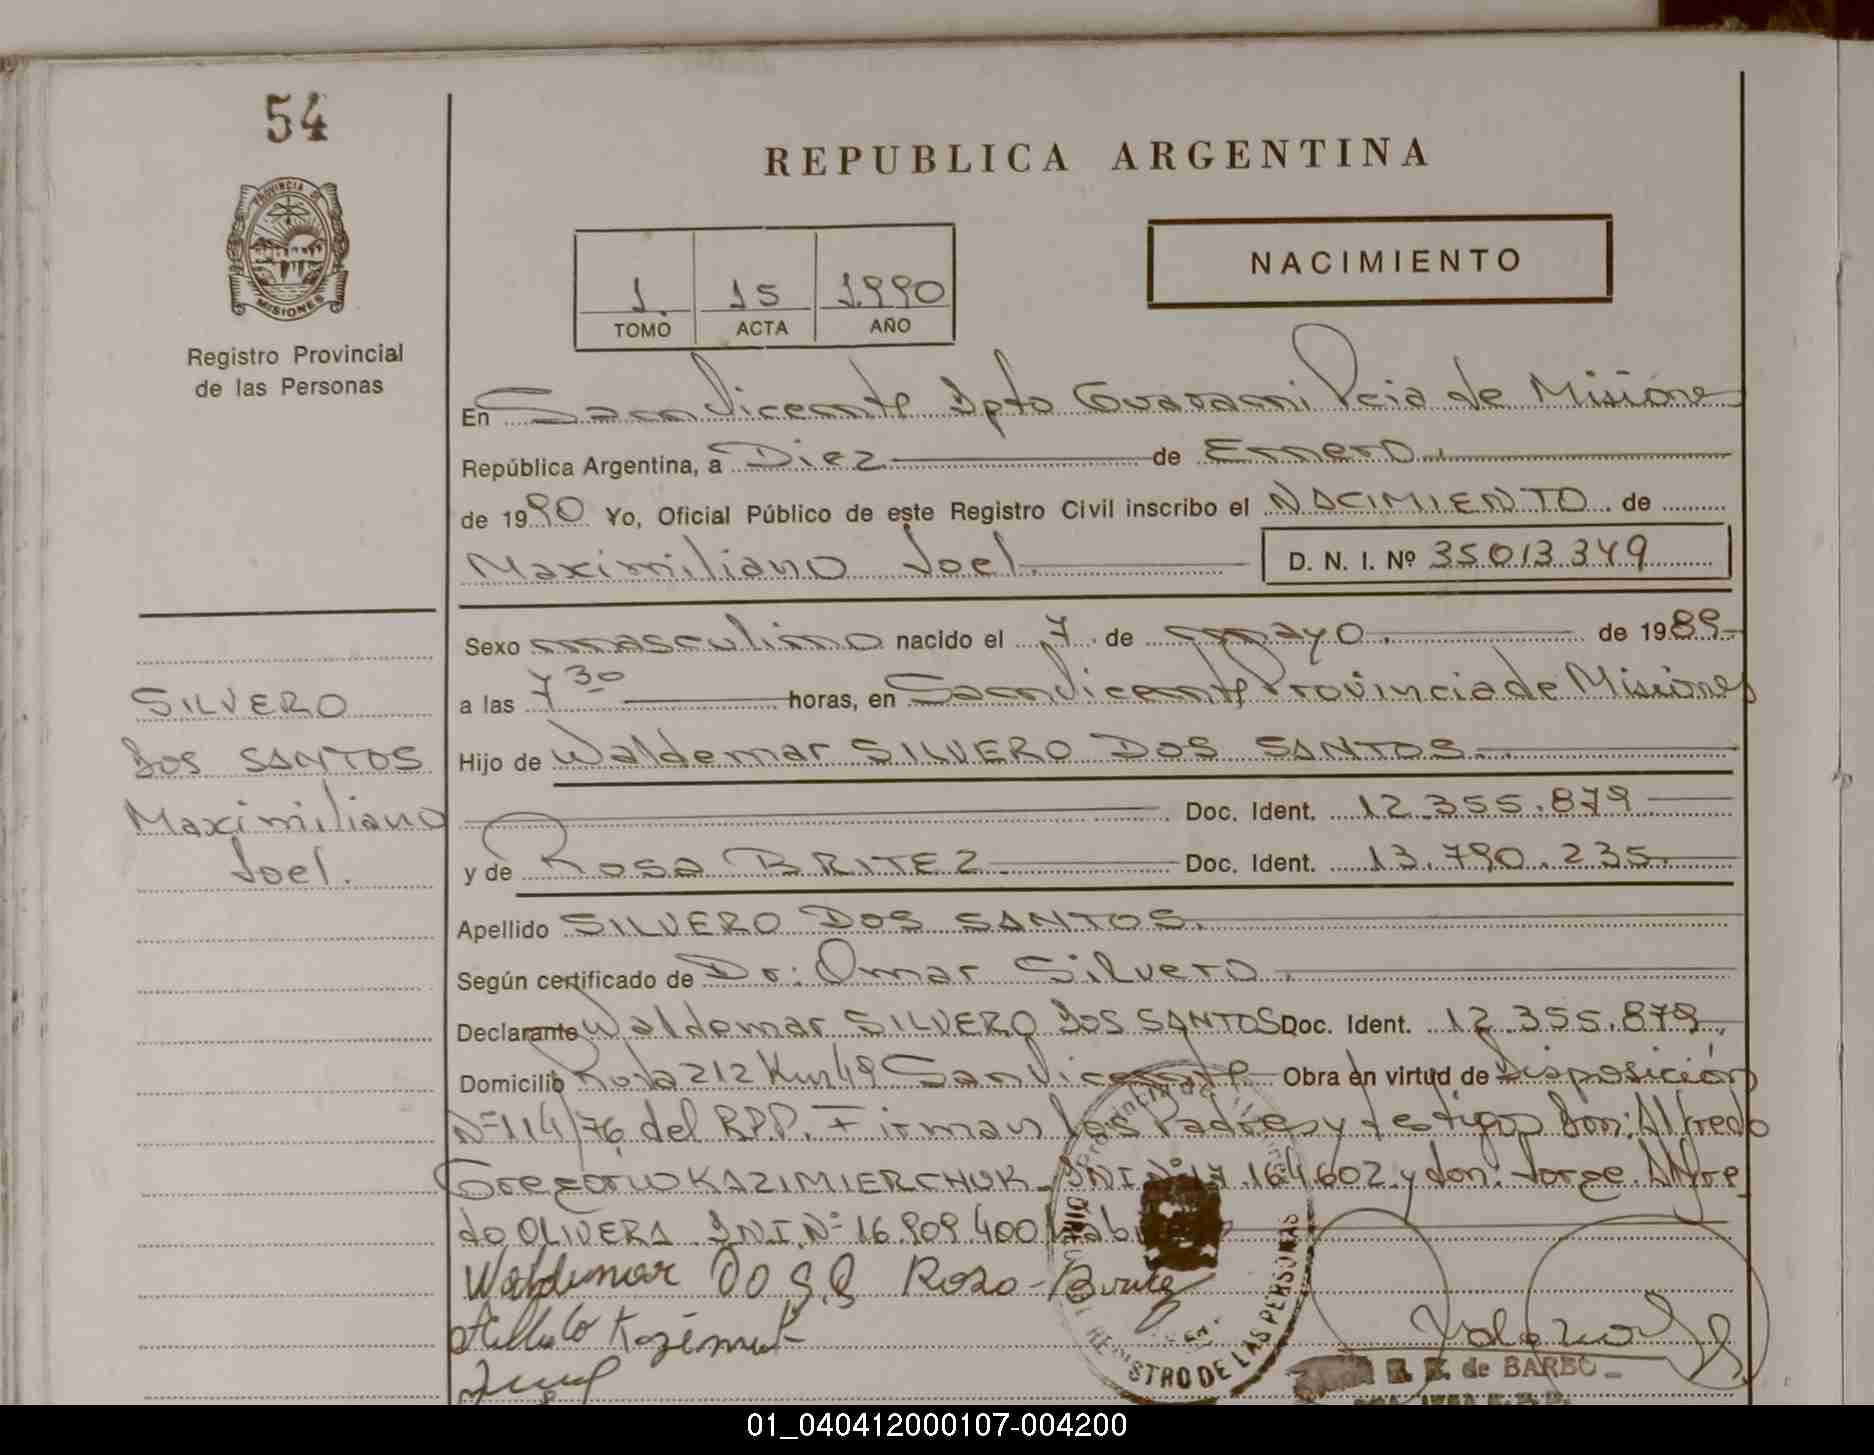 54
REPUBLICA ARGENTINA
PROVINCIA DE
MISIONES
Registro Provincial
de las Personas
1 15 1.990
TOMO ACTA AÑO
NACIMIENTO
En San Vicente Dpto Guarani Pcia de Misiones
República Argentina, a Diez de Enero.
de 1990 Yo, Oficial Público de este Registro Civil inscribo el NACIMIENTO de
Maximiliano Joel. D. N. I. Nº 35013349
Sexo masculino nacido el 7 de mayo. de 1989
a las 7 30 horas, en San Vicente Provincia de Misiones
SILVERO
DOS SANTOS
Maximiliano
Joel.
Hijo de Waldemar SILVERO DOS SANTOS
Doc. Ident. 12.355.879
y de Rosa BRITEZ Doc. Ident. 13.790.235
Apellido SILVERO DOS SANTOS.
Según certificado de Dr: Omar Silvero
Declarante Waldemar SILVERO DOS SANTOS Doc. Ident. 12.355.879
Domicilio Ruta 212 Km 49 San Vicente Obra en virtud de Disposición
Nº 114/76 del R.P.P. Firman los Padres y testigos Don: Alfredo
Gregorio KAZIMIERCHUK DNI Nº 17.164.602 y don: Jorge Alfre
do OLIVERA DNI. Nº 16.909.400
Waldemar DO S.S Rosa
REGISTRO DE LAS PERSONAS
de BARBO
01_040412000107-004200